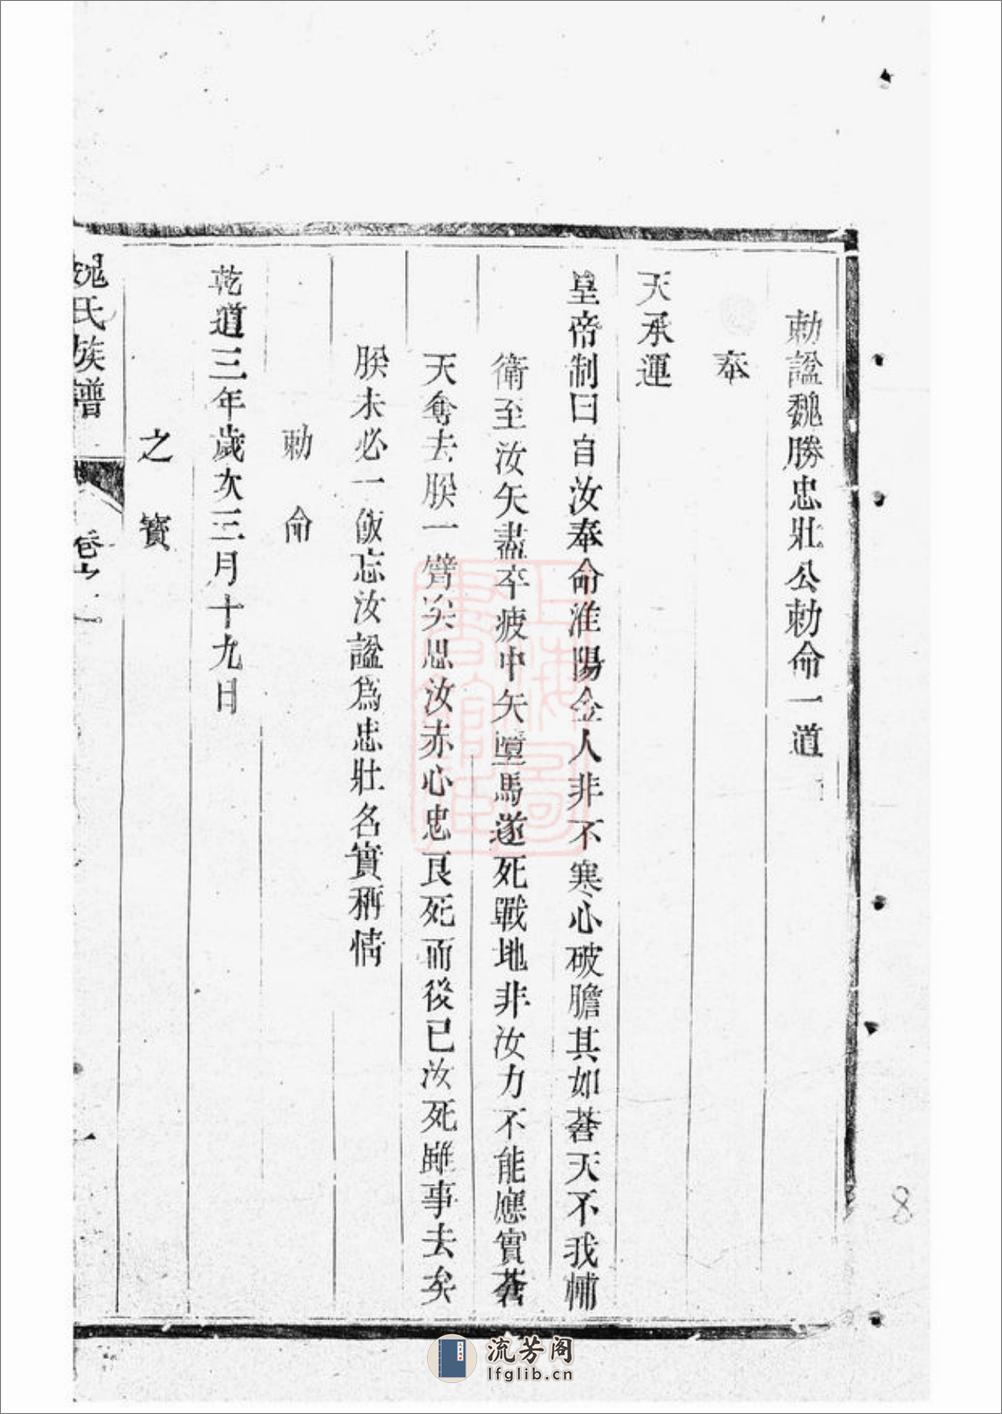 勅諡魏勝忠壯公勅命一道
奉
天承運
皇帝制曰自汝奉命淮陽金人非不寒心破膽其如蒼天不我輔
衛至汝矢盡卒疲中矢墮馬遂死戰地非汝力不能應實蒼
天奪去朕一臂矣思汝赤心忠良死而後已汝死雖事去矣
朕未必一飯忘汝諡爲忠壯名實稱情
勅命
乾道三年歲次三月十九日
之寳
魏氏族譜
卷之一
一
上海圖書館藏
8
流芳阁
lfglib.cn